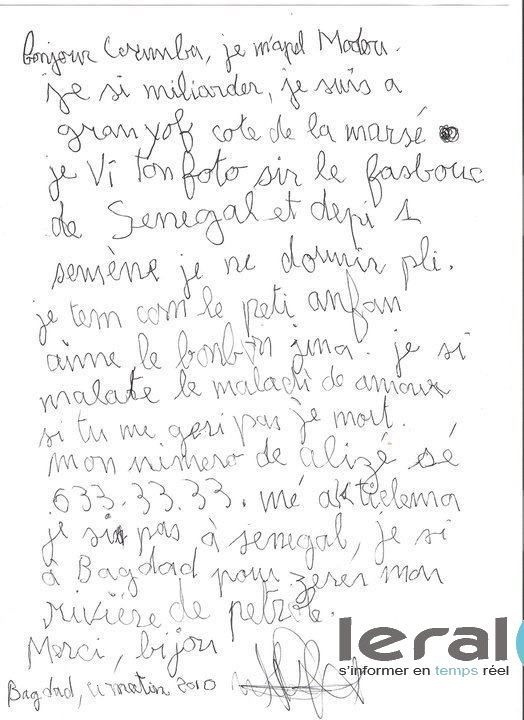 bonjour Coumba, je m'apel Modou.
je si miliarder, je suis a
gran yof cote de la marsé
je Vi ton foto sir le fasbouc
de Senegal et depi 1
semène je ne dormir pli.
je tem com le peti anfan
aime le bonbon jina. je si
malate le maladi de amour
si tu me geri pas je mort.
mon nimero de alizé sé
633.33.33. mé aktielema
je si pas à senegal, je si
à Bagdad pour zerer mon
rivière de petrole.
Merci, bijou
Bagdad, matin 2010
leral
s'informer en temps réel